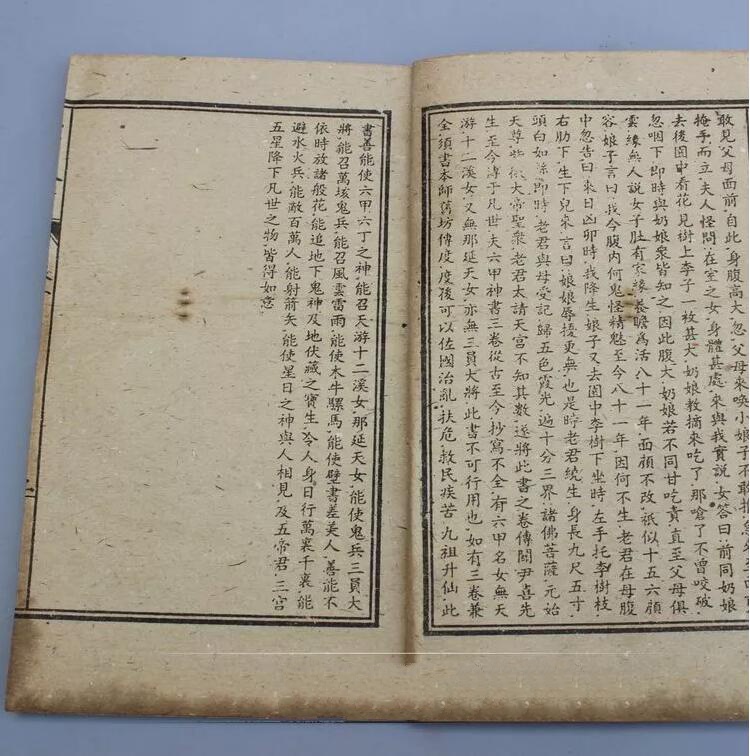 敢見父母面前.自此.身腹高大.忽.父母來喚.小娘子不敢
掩手而立.夫人怪問.在室之女.身體甚處.來與我實說.女答曰.前同奶娘
去後園中看花.見樹上李子一枚甚大.奶娘教摘來吃了.那嗆了不曾咬破.
忽咽下.即時與奶娘衆皆知之.因此腹大.奶娘若不同甘吃責.直至父母俱
雲.緣無人說女子肚有家緣.長瞻為活八十一年.面顏不改.祇似十五六顏
容.娘子言曰.我今腹內何鬼怪精魅.至今八十一年.因何不生.老君在母腹
中.忽告曰.來日凶卯時.我降生.娘子又去園中李樹下坐時.左手托李樹枝
右肋下.生下兒來.言曰.娘娘辱擾更無也.是時老君繞生.身長九尺五寸
頭白如絲.即時.老君與母受記.歸五色霞光.遍十分三界.諸佛菩薩.元始
天尊.些微大帝聖衆.老君太請天宮不知其數.遂將此書之卷傳關尹喜先
生.至今濤于凡世.夫六甲神書三卷.從古至今.抄寫不全.有六甲名.女無天
游十二溪女.又無那延天女.亦無三員大將.此書不可行用也.如有三卷兼
全.須書本師舊坊傳度.度後可以佐國治亂.扶危.救民疾苦.九祖升仙.此
書善能使六甲六丁之神.能召天游十二溪女.那延天女.能使鬼兵三員大
將.能召萬垓鬼兵.能召風雲雷雨.能使木牛騾馬.能使壁書差美人.善能不
依時放諸般花.能追地下鬼神及地伏藏之寶.生.令人身日行萬裏千裏.能
避水火兵.能敵百萬人.能射箭矢.能使星日之神與人相見.及五帝君.三宮
五星降下凡世之物.皆得如意.